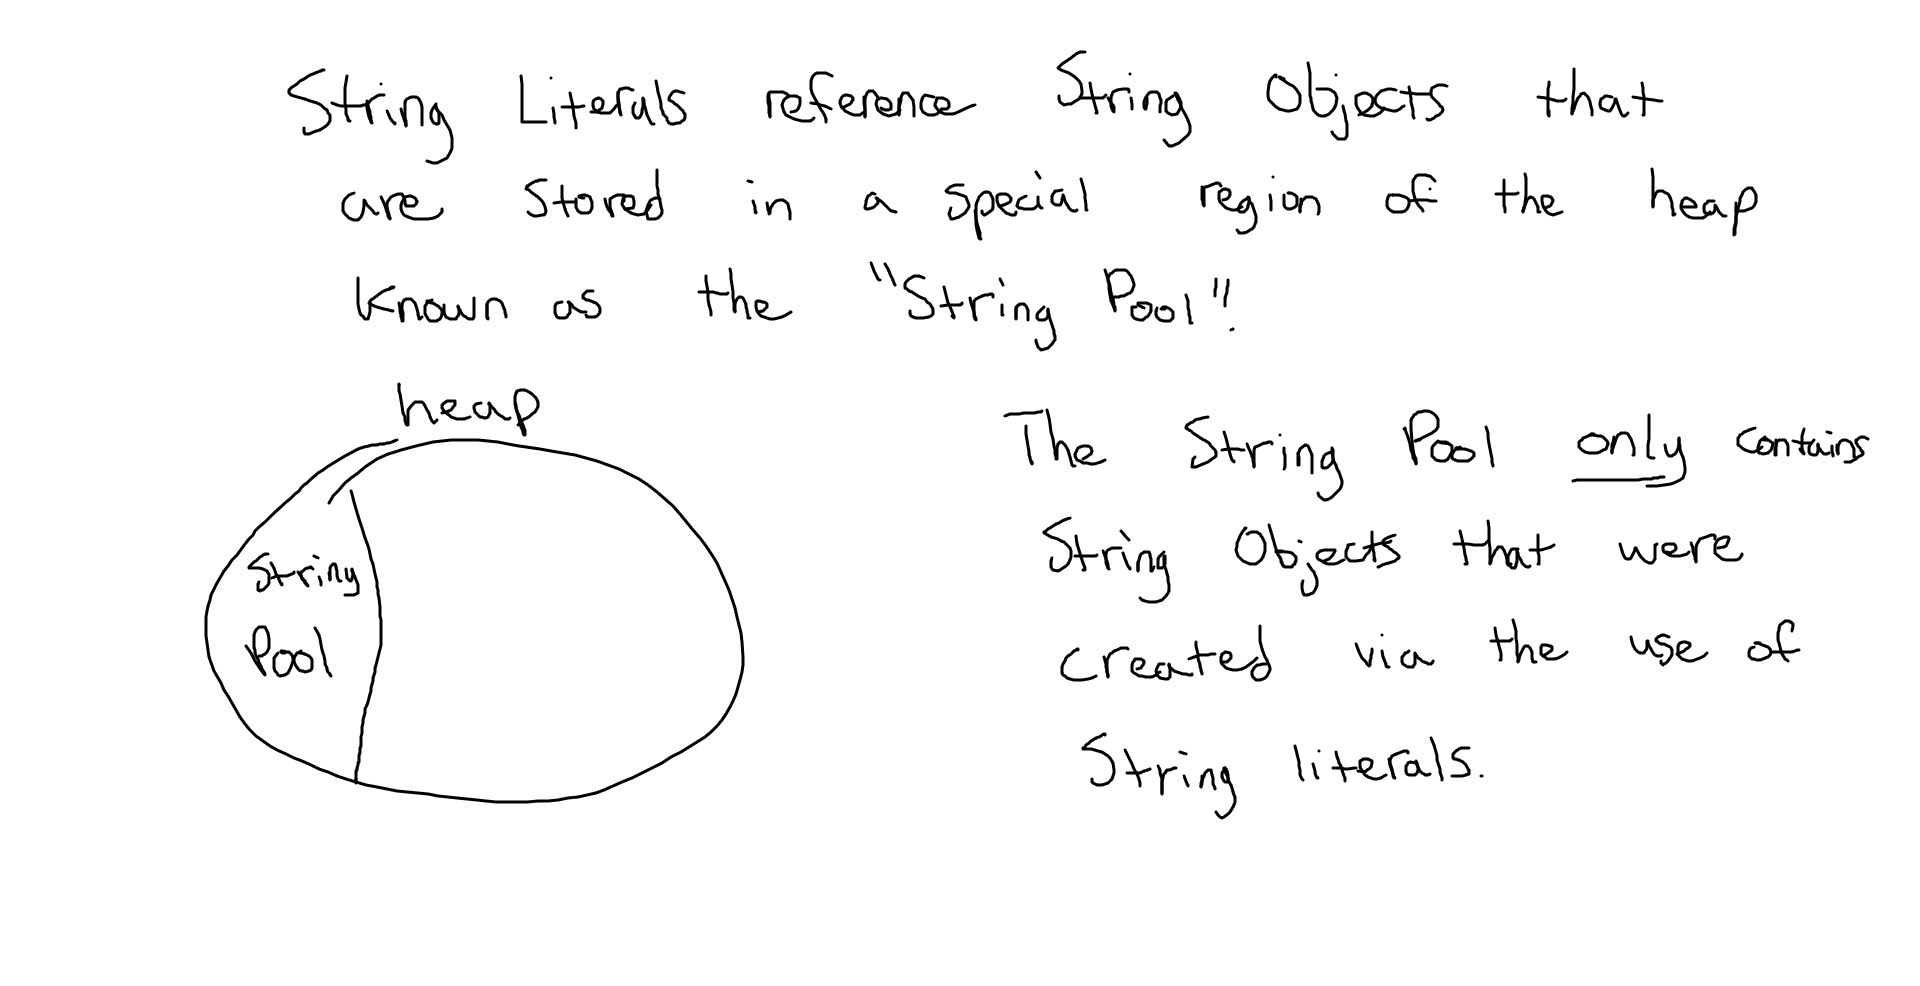 String Literals reference String Objects that
are stored in a special region of the heap
known as the "String Pool".
heap
String
Pool
The String Pool only contains
String Objects that were
created via the use of
String literals.